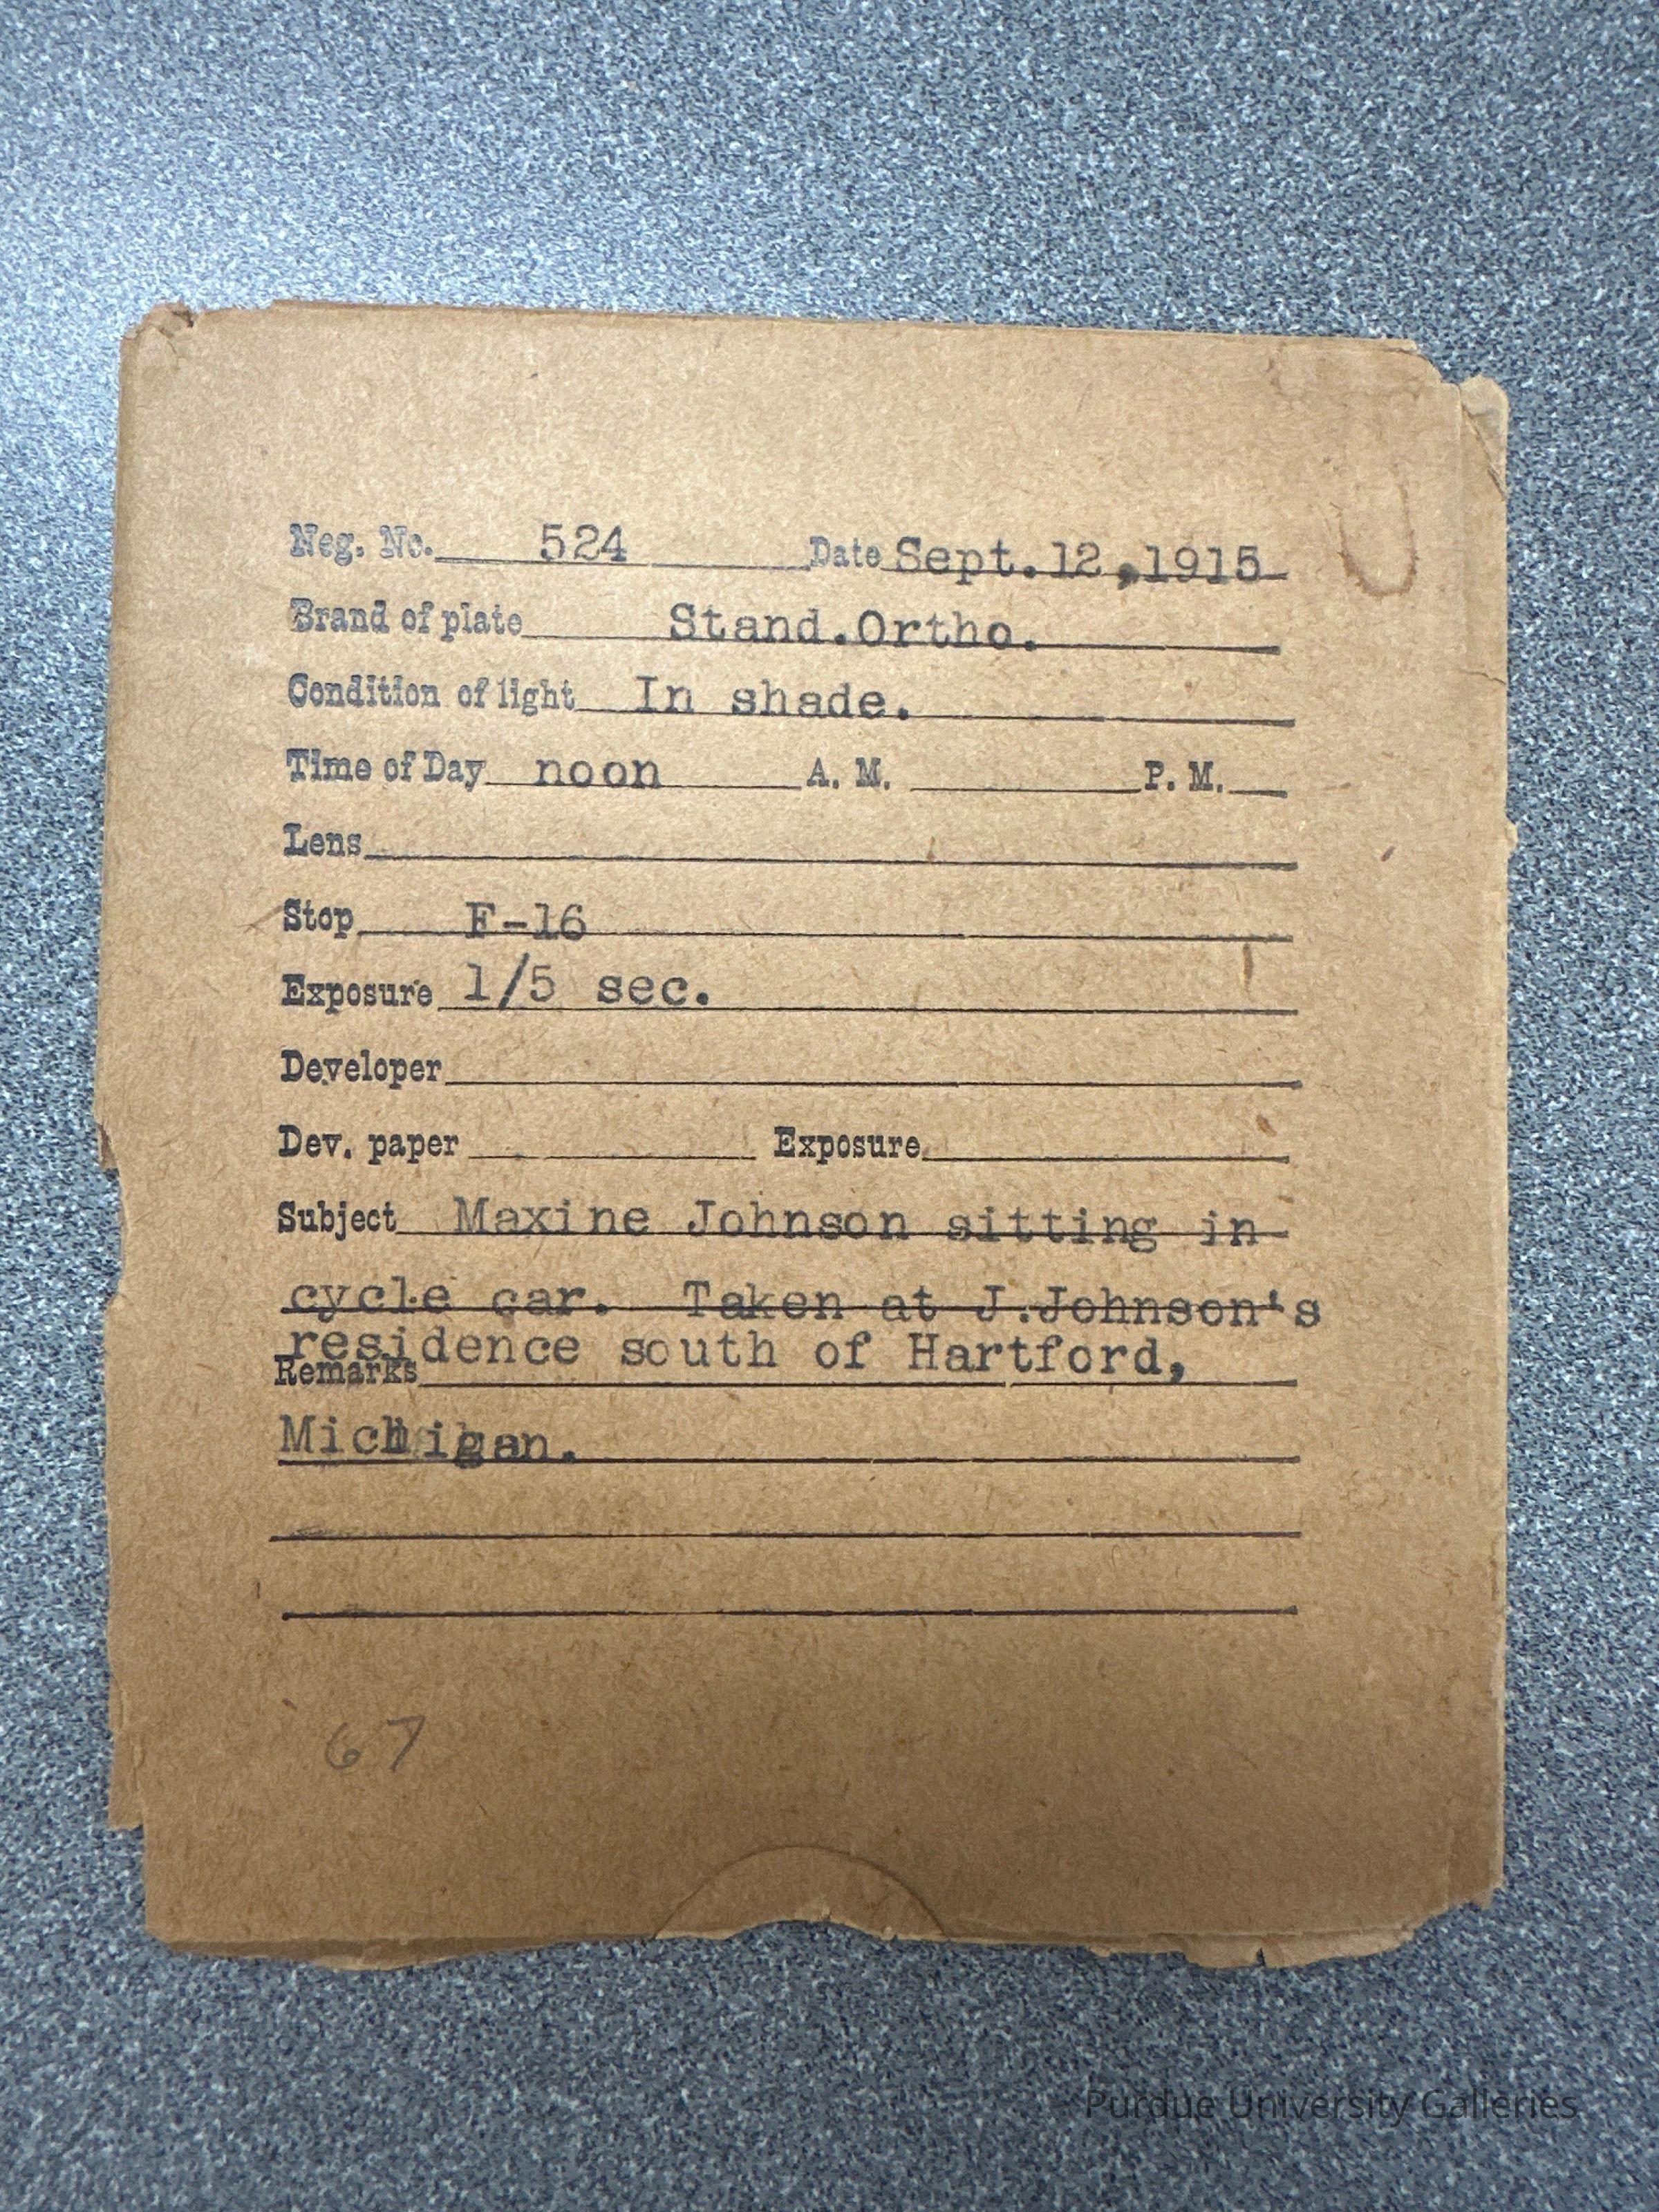 Neg. No. 524 Date Sept.12,1915
Brand of plate Stand.Ortho.
Condition of light In shade.
Time of Day noon A. M. P. M.
Lens
Stop F-16
Exposure 1/5 sec.
Developer
Dev. paper Exposure
Subject Maxine Johnson sitting in
cycle car. Taken at J.Johnson's
residence south of Hartford,
Remarks
Michigan.
67
Purdue University Galleries